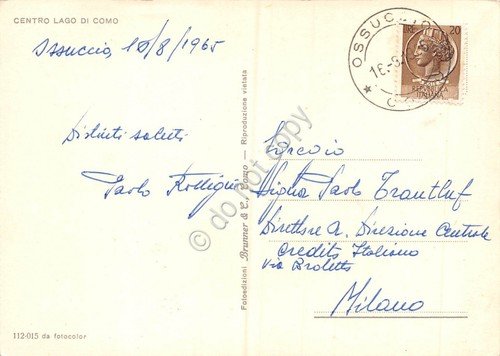 CENTRO LAGO DI COMO
Ossuccio, 18/8/1965
Distinti saluti
Paolo
LIRE 20
REPUBBLICA
ITALIANA
OSSUCCIO
16-8
Fotoedizioni Brunner & C., Como — Riproduzione vietata
Egregio
Paolo
Direttore Direzione Centrale
Credito Italiano
Via Broletto
Milano
112-015 da fotocolor
do not copy